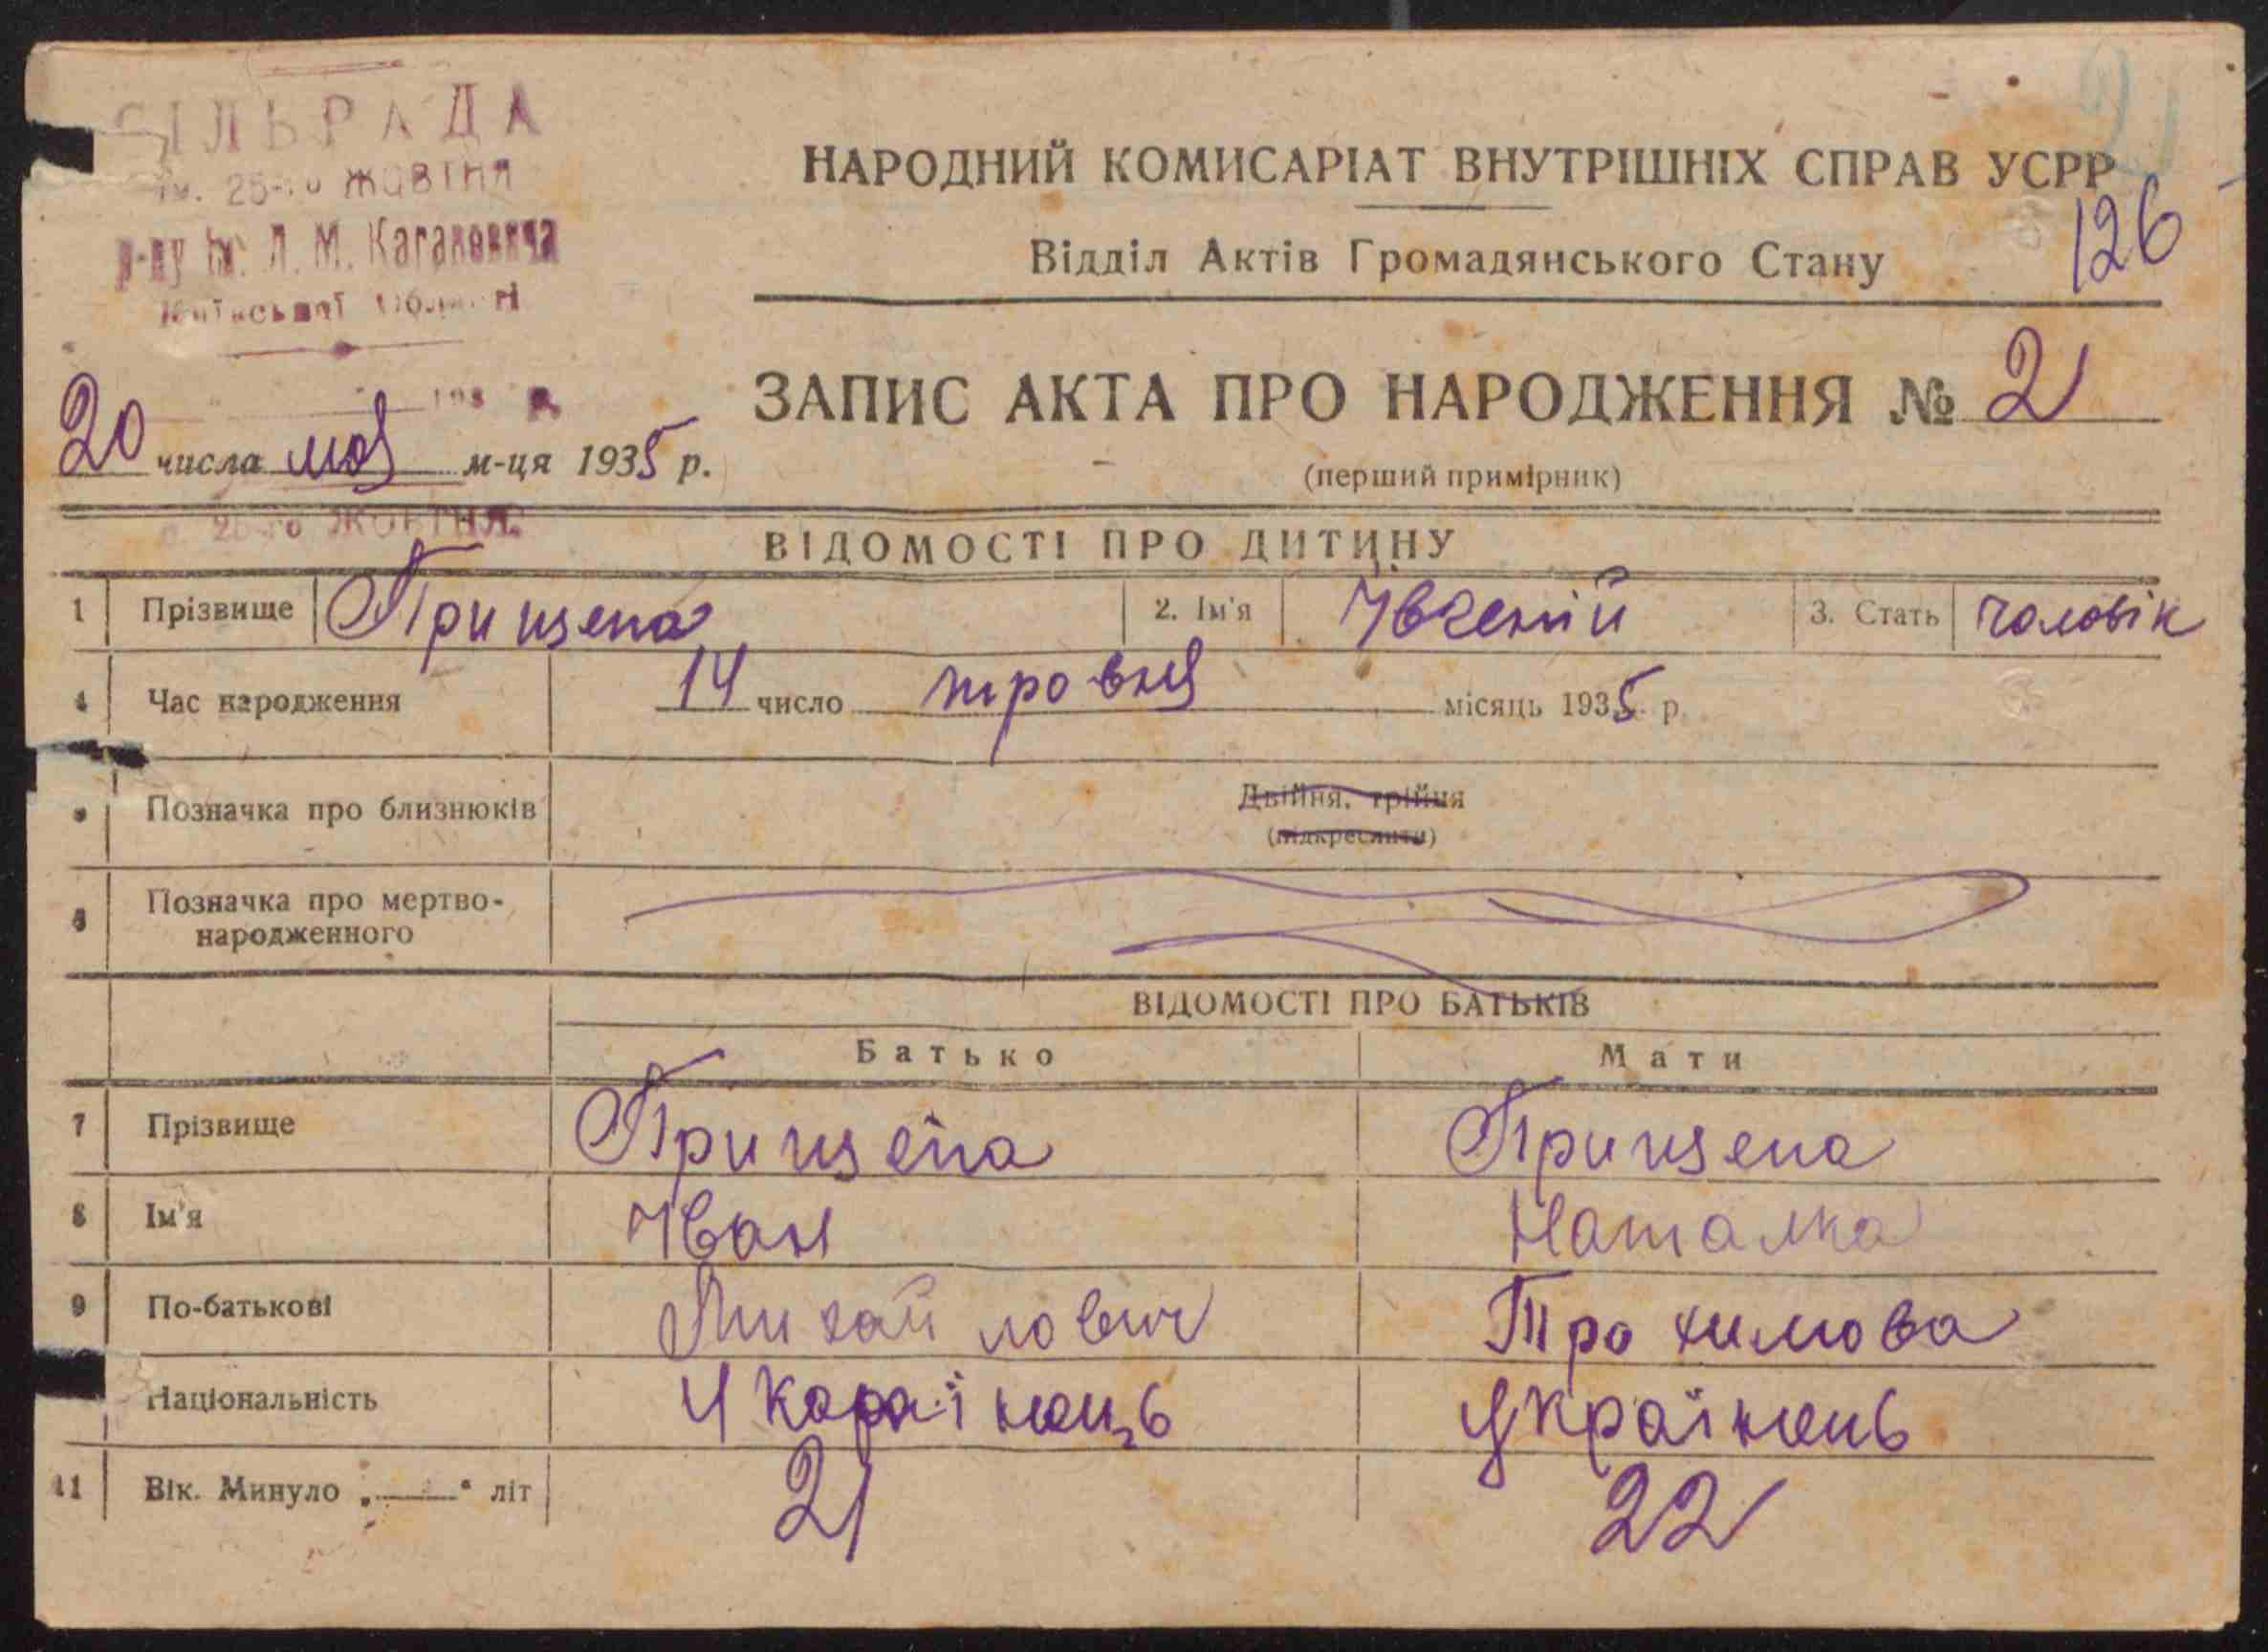 СІЛЬРАДА
ім. 25-го ЖОВТНЯ
р-ну ім. Л. М. Кагановича
Київської Області
НАРОДНИЙ КОМИСАРІАТ ВНУТРІШНІХ СПРАВ УСРР
126
Відділ Актів Громадянського Стану
ЗАПИС АКТА ПРО НАРОДЖЕННЯ № 21
193 р.
20 числа мая м-ця 1935 р.
(перший примірник)
с. 25-го ЖОВТНЯ
ВІДОМОСТІ ПРО ДИТИНУ
1 Прізвище Прищепа 2. Ім'я Ивгеній 3. Стать чоловік
4 Час народження 14 число травня місяць 1935 р.
Позначка про близнюків Двійня, трійня
(підкреслити)
6 Позначка про мертво-
народженного
ВІДОМОСТІ ПРО БАТЬКІВ
Батько Мати
7 Прізвище Прищепа Прищепа
8 Ім'я Иван Наталка
9 По-батькові Михайлович Трохимова
Національність Украінець Українець
11 Вік. Минуло „ “ літ 21 22